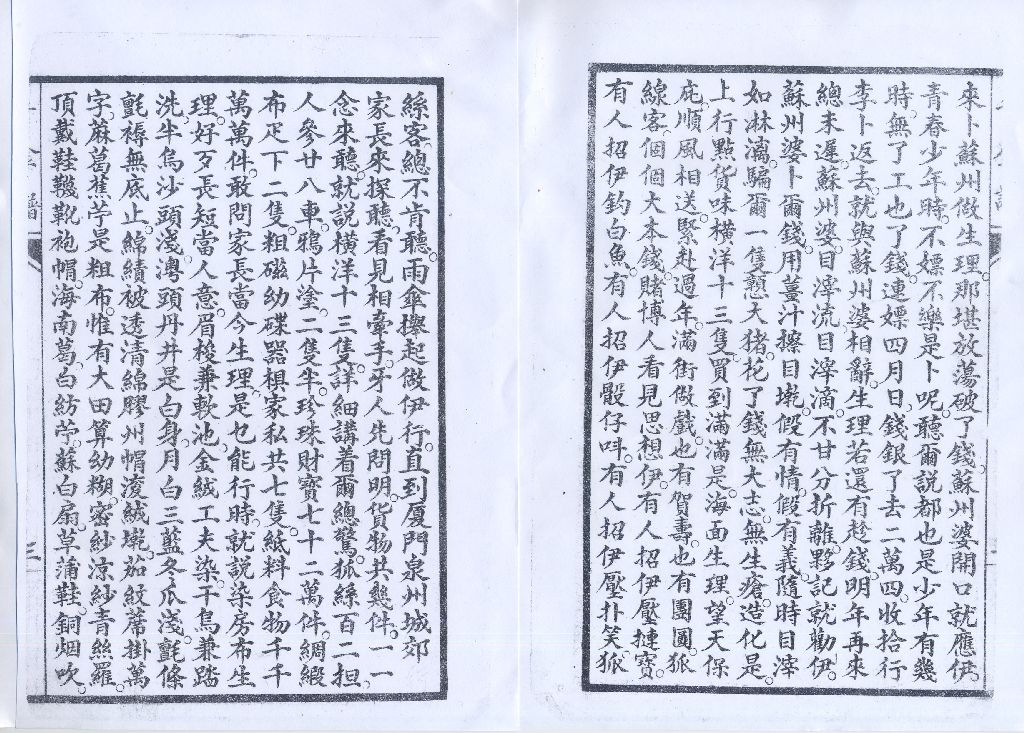 來卜蘇州做生理那堪放蕩破了錢蘇州婆開口就應伊
青春少年時不嫖不樂是卜呢聽爾説都也是少年有幾
時無了工也了錢連嫖四月日錢銀了去二萬四收拾行
李卜返去就與蘇州婆相辭生理若還有趁錢明年再來
總未遲蘇州婆目滓流目滓滴不甘分折離夥記就勸伊
蘇州婆卜爾錢用薑汁擦目墘假有情假有義隨時目滓
如淋漓騙爾一隻戇大猪佗了錢無大志無生瘡造化是
上行點貨味橫洋十三隻買到滿滿是海面生理望天保
庇順風相送緊赴過年滿街做戲也有賀壽也有團圓狐
線客個個大本錢賭博人看見思想伊有人招伊壓捷寶
有人招伊釣白魚有人招伊骰仔呌有人招伊壓扑笑狐
絲客總不肯聽雨傘攑起做伊行直到厦門泉州城郊
家長來探聽看見相牽手牙人先問明貨物共幾件一一
念來聽就説橫洋十三隻詳細講着爾總驚狐絲百二担
人參廿八車鴉片塗二隻半珍珠財寶七十二萬件綢緞
布疋下二隻粗磁幼碟器棋家私共七隻紙料食物千千
萬萬件敢問家長當今生理是乜能行時就説染房布生
理好歹長短當人意眉梭兼軟池金絨工夫染干烏兼踏
洗牛烏沙頭淺澚頭丹井是白身月白三藍冬瓜淺氈條
氈褥無底止綿績被透清綿膠州帽滾絨墘茄紋蓆掛萬
字麻葛蕉苧是粗布惟有大田算幼糊密紗涼紗青絲羅
頂戴鞋韈靴袍帽海南葛白紡苧蘇白扇草蒲鞋銅烟吹
譜
三